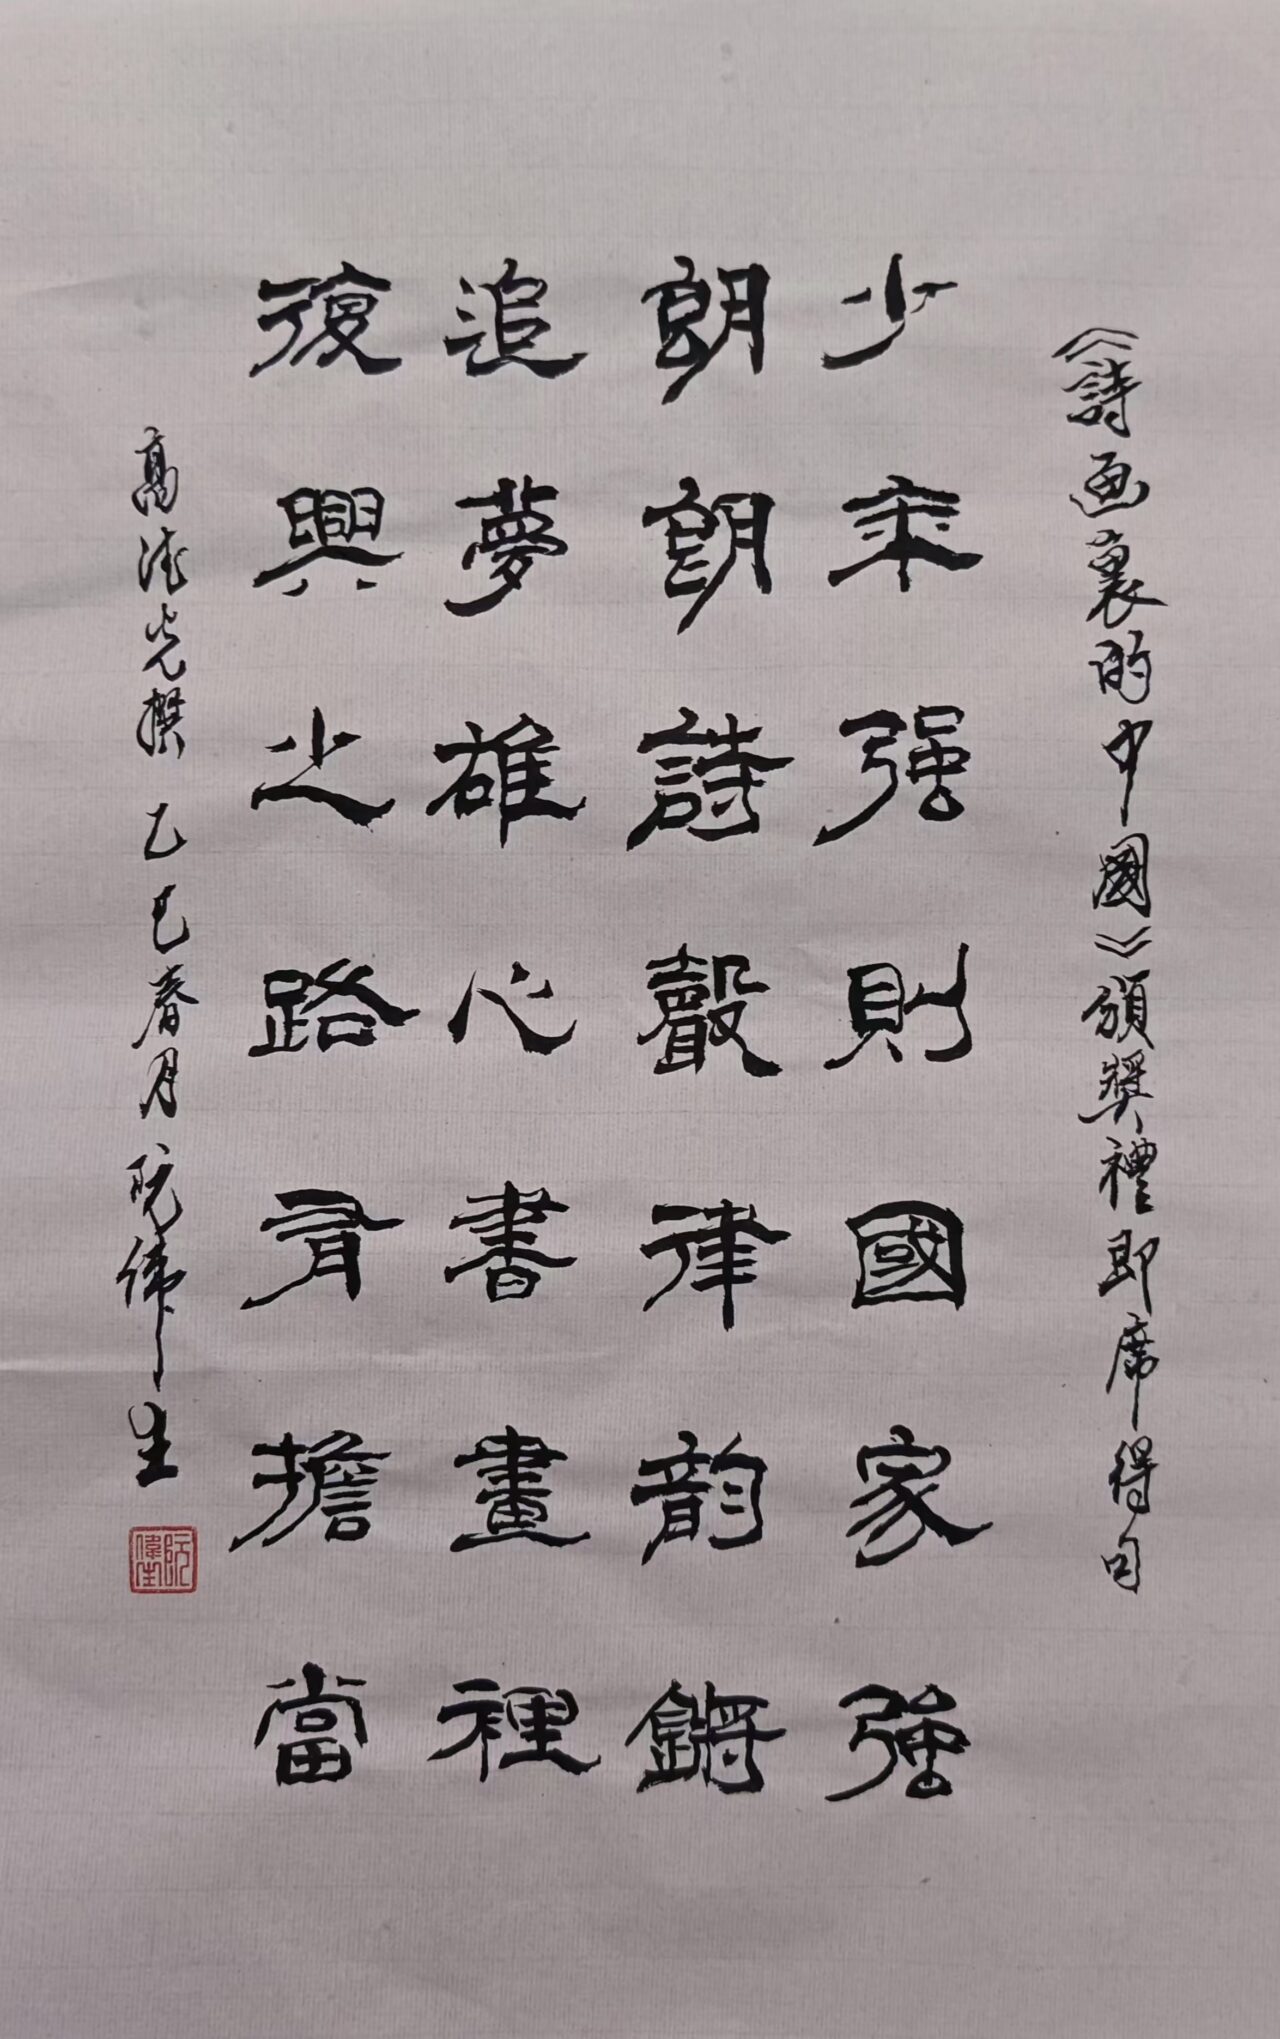 《詩画裏的中國》頒獎禮即席得句
少年强則國家強
朗朗詩聲律韵鏘
追夢雄心書畫裡
復興之路有擔當
高德光撰 乙巳春月 阮偉生
阮偉生